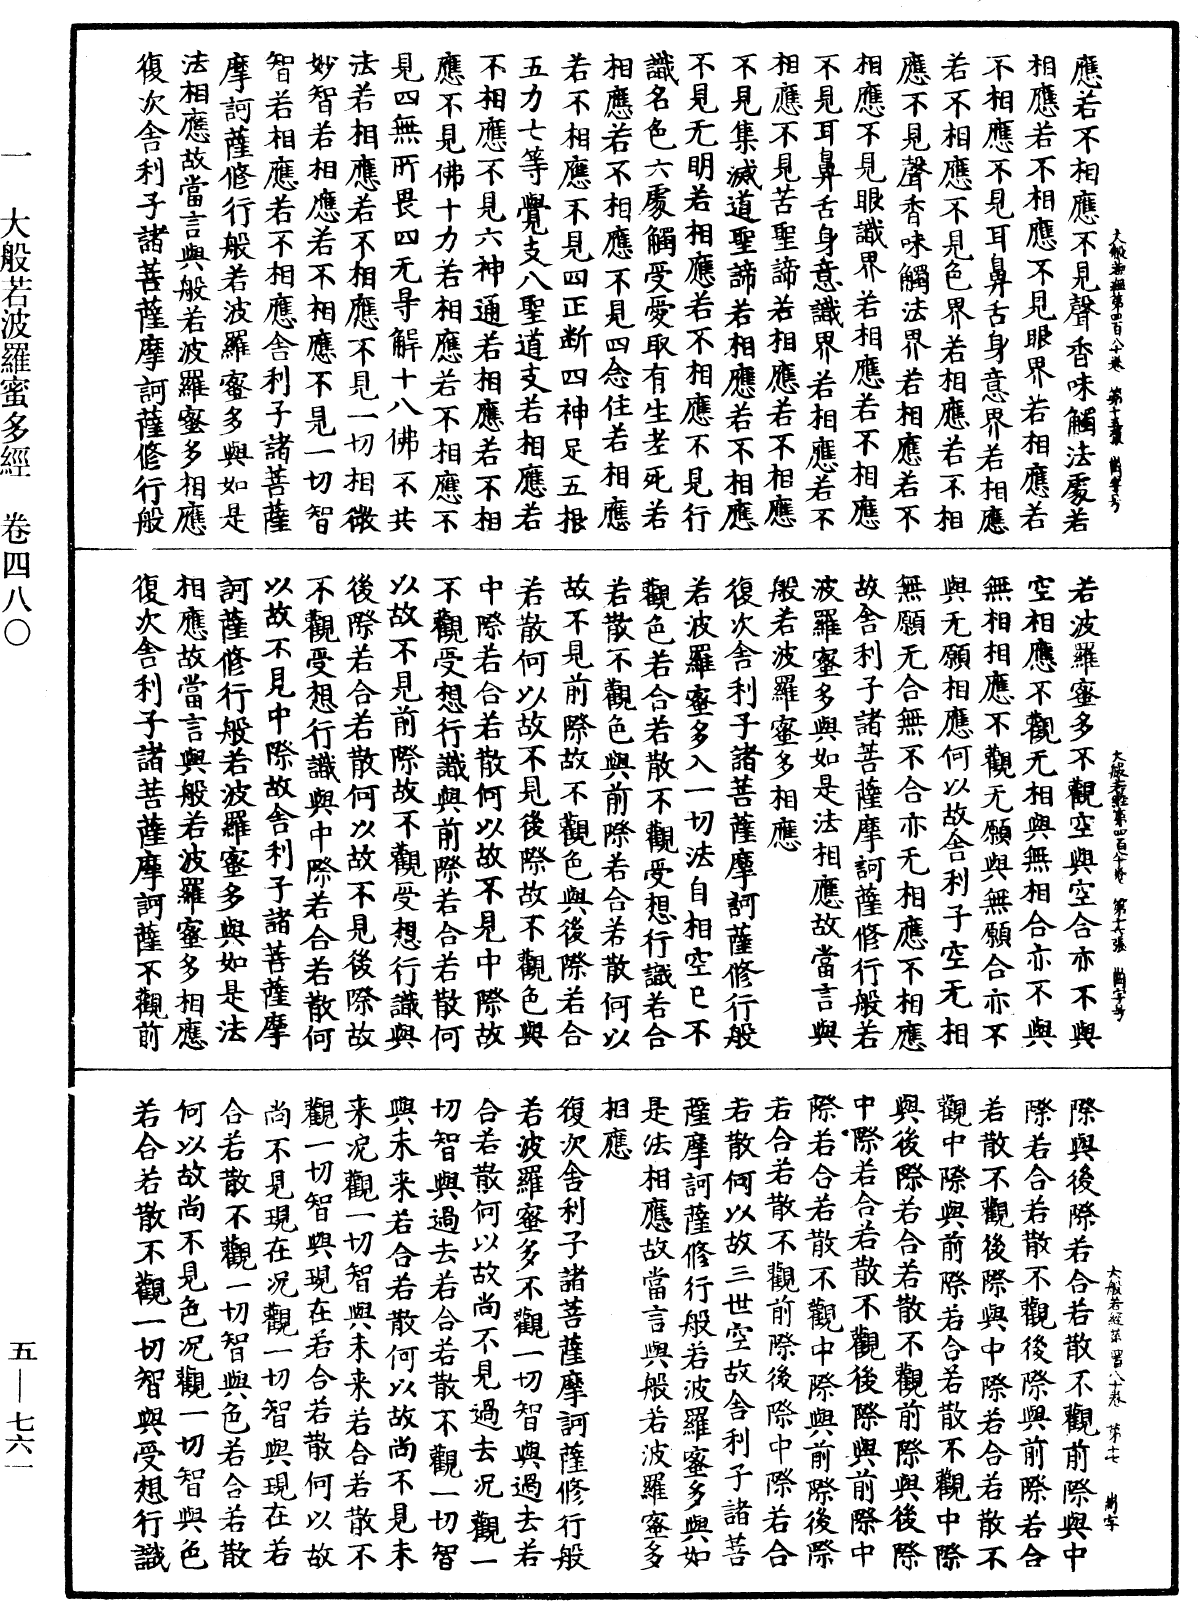 一 大般若波羅蜜多經 卷四八〇
五—七六一
大般若經第四百八十卷 第十五張
應若不相應不見聲香味觸法處若
相應若不相應不見眼界若相應若
不相應不見耳鼻舌身意界若相應
若不相應不見色界若相應若不相
應不見聲香味觸法界若相應若不
相應不見眼識界若相應若不相應
不見耳鼻舌身意識界若相應若不
相應不見苦聖諦若相應若不相應
不見集滅道聖諦若相應若不相應
不見无明若相應若不相應不見行
識名色六處觸受愛取有生老死若
相應若不相應不見四念住若相應
若不相應不見四正斷四神足五根
五力七等覺支八聖道支若相應若
不相應不見六神通若相應若不相
應不見佛十力若相應若不相應不
見四無所畏四无㝵解十八佛不共
法若相應若不相應不見一切相微
妙智若相應若不相應不見一切智
智若相應若不相應舍利子諸菩薩
摩訶薩修行般若波羅蜜多與如是
法相應故當言與般若波羅蜜多相應
復次舍利子諸菩薩摩訶薩修行般
大般若經第四百八十卷 第十六張
若波羅蜜多不觀空與空合亦不與
空相應不觀无相與無相合亦不與
無相相應不觀无願與無願合亦不
與无願相應何以故舍利子空无相
無願无合無不合亦无相應不相應
故舍利子諸菩薩摩訶薩修行般若
波羅蜜多與如是法相應故當言與
般若波羅蜜多相應
復次舍利子諸菩薩摩訶薩修行般
若波羅蜜多入一切法自相空已不
觀色若合若散不觀受想行識若合
若散不觀色與前際若合若散何以
故不見前際故不觀色與後際若合
若散何以故不見後際故不觀色與
中際若合若散何以故不見中際故
不觀受想行識與前際若合若散何
以故不見前際故不觀受想行識與
後際若合若散何以故不見後際故
不觀受想行識與中際若合若散何
以故不見中際故舍利子諸菩薩摩
訶薩修行般若波羅蜜多與如是法
相應故當言與般若波羅蜜多相應
復次舍利子諸菩薩摩訶薩不觀前
大般若經第四百八十卷 第十七
際與後際若合若散不觀前際與中
際若合若散不觀後際與前際若合
若散不觀後際與中際若合若散不
觀中際與前際若合若散不觀中際
與後際若合若散不觀前際與後際
中際若合若散不觀後際與前際中
際若合若散不觀中際與前際後際
若合若散不觀前際後際中際若合
若散何以故三世空故舍利子諸菩
薩摩訶薩修行般若波羅蜜多與如
是法相應故當言與般若波羅蜜多
相應
復次舍利子諸菩薩摩訶薩修行般
若波羅蜜多不觀一切智與過去若
合若散何以故尚不見過去況觀一
切智與過去若合若散不觀一切智
與未来若合若散何以故尚不見未
来況觀一切智與未来若合若散不
觀一切智與現在若合若散何以故
尚不見現在況觀一切智與現在若
合若散不觀一切智與色若合若散
何以故尚不見色況觀一切智與色
若合若散不觀一切智與受想行識